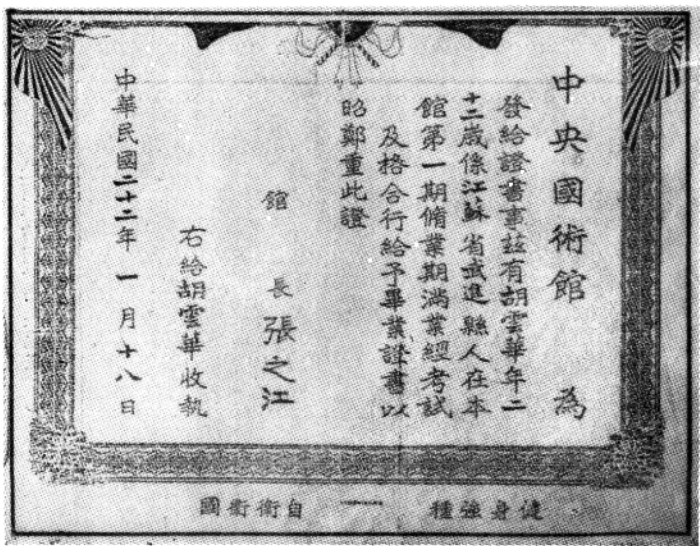 中央國術館　為
發給證書事茲有胡雲華年二
十三歲係江蘇省武進縣人在本
館第一期脩業期滿業經考試
及格合行給予畢業證書以
昭鄭重此證
館　長　張之江
右給胡雲華收執
中華民國二十二年一月十八日
健身強種　一　自衛衛國